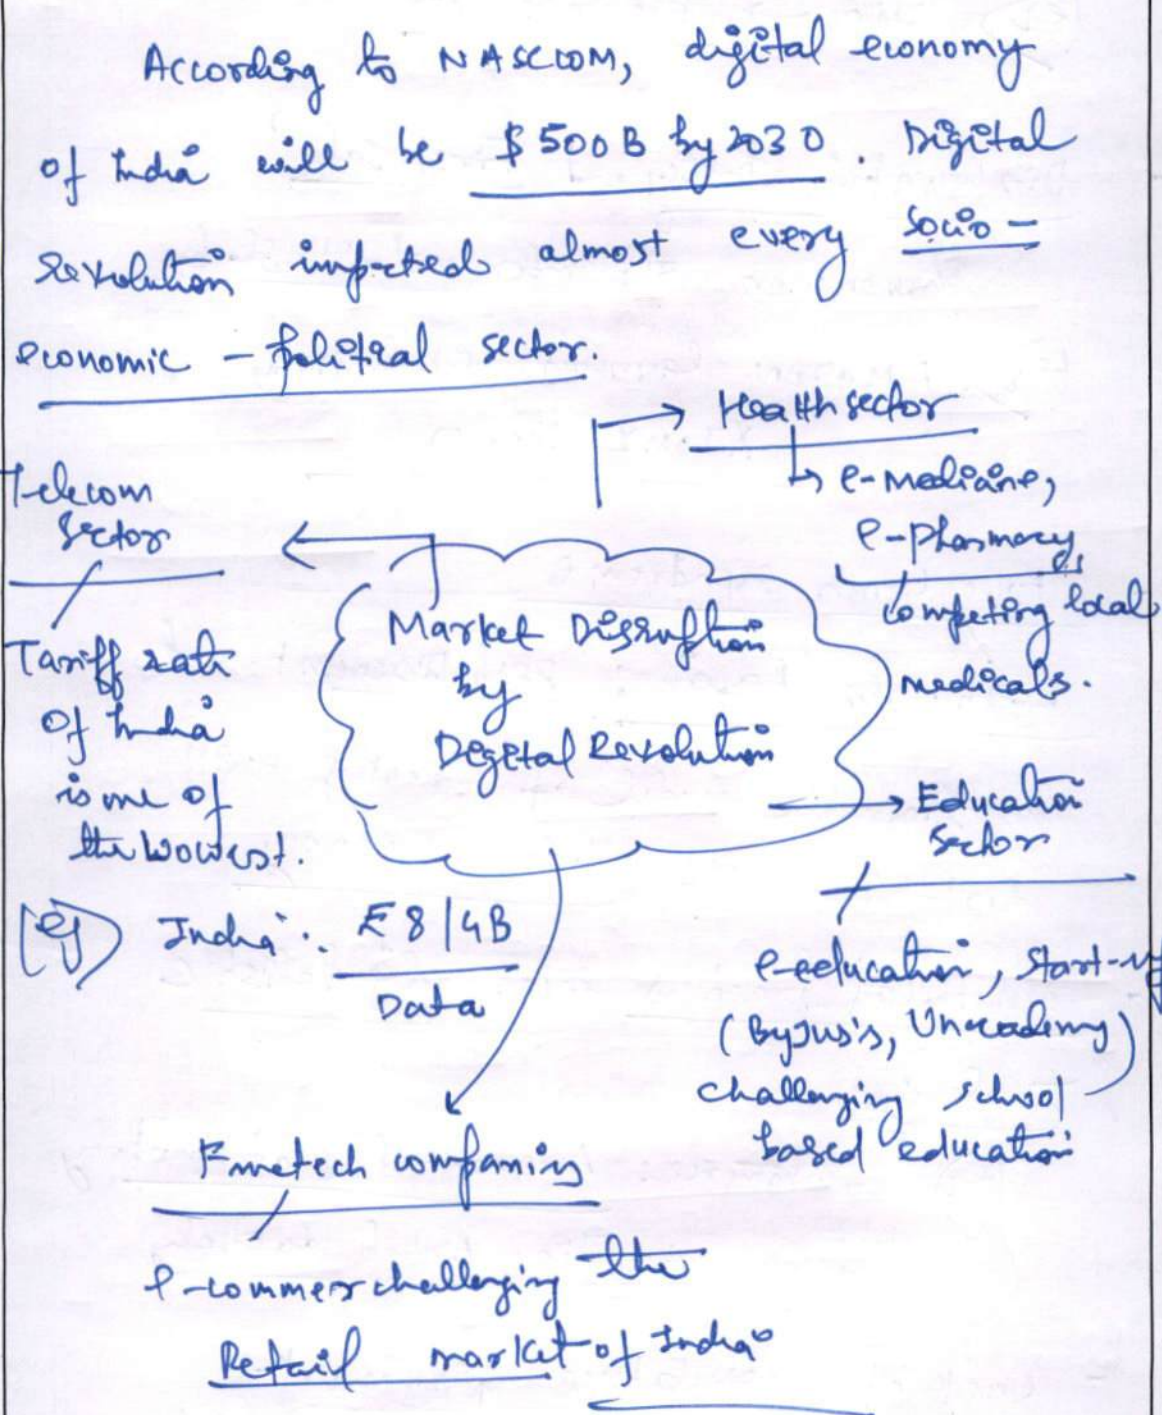 According to NASCCOM, digital economy
of India will be $500B by 2030. Digital
revolution impacted almost every socio-
economic - political sector.
Health sector
e-medicine,
e-pharmacy,
competing local
medicals.
Telecom
Sector
Tariff rate
of India
is one of
the lowest.
(eg) India: ₹8/GB
Data
Market Disruption
by
Digetal Revolution
Education
Sector
e-education, start-up
(Byjus's, Unacademy)
challenging school
based education
companies
e-commer challenging the
Retail market of India